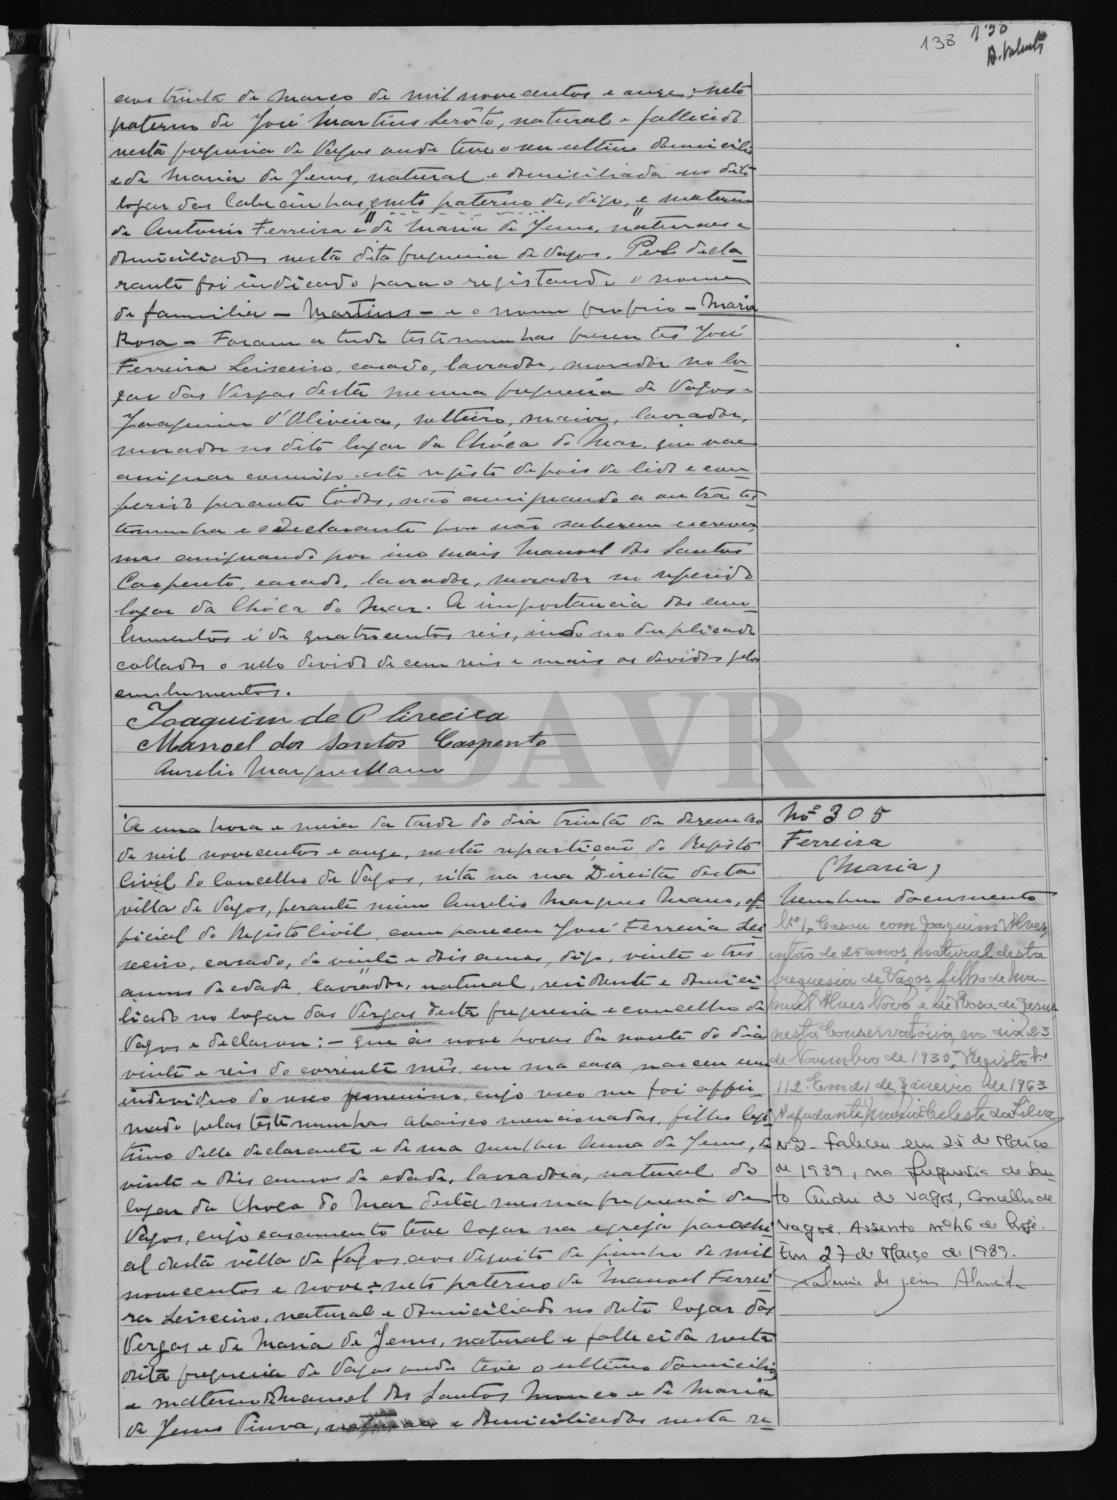 138 130
A. Valente
aos trinta de Março de mil novecentos e onze; neto
paterno de José Martins Serôto, natural e fallecido
nesta freguesia de Vagos onde teve o seu ultimo domicilio
e de Maria de Jesus, natural e domiciliada no dito
logar das , neto paterno de, digo, e materno
de Antonio Ferreira e de Maria de Jesus, naturaes e
domiciliados nesta dita freguesia de Vagos. Pelo decla-
rante foi indicado para o registando o nome
de familia — Martins — e o nome proprio — Maria
Rosa — Foram a tudo testemunhas presentes José
Ferreira Leixeiro, casado, lavrador, morador no lo-
gar das Vergas desta mesma freguesia de Vagos e
Joaquim d'Oliveira, solteiro, maior, lavrador,
morador no dito logar da Chóca do Mar, que vae
assignar commigo este registo depois de lido e con-
ferido perante todos, não assignando a outra tes-
temunha e o declarante por não saberem escrever
mas assignando por isso mais Manoel dos Santos
Caspento, casado, lavrador, morador no referido
logar da Chóca do Mar. A importancia dos emo-
lumentos é de quatrocentos reis, indo no duplicado
collados o sello devido de cem reis e mais os devidos pelos
emolumentos.
Joaquim de Oliveira
Manoel dos Santos Caspento
Aurelio Marques Mano
A uma hora e meia da tarde do dia trinta de dezembro
de mil novecentos e onze, nesta repartição do Registo
Civil do Concelho de Vagos, sita na rua Direita desta
villa de Vagos, perante mim Aurelio Marques Mano, of-
ficial do Registo Civil, compareceu José Ferreira Lei-
xeiro, casado, de vinte e dois annos, digo, vinte e tres
annos de edade, lavrador, natural, residente e domici-
liado no logar das Vergas desta freguesia e concelho de
Vagos e declarou: — que ás nove horas da noute do dia
vinte e seis do corrente mês, em sua casa, nasceu um
individuo do sexo femenino, cujo sexo me foi affir-
mado pelas testemunhas abaixo mencionadas, filho legi-
timo delle declarante e de sua mulher Anna de Jesus, de
vinte e dois annos de edade, lavradora, natural do
logar da Choca do Mar desta mesma freguesia de
Vagos, cujo casamento teve logar na egreja parochi-
al desta villa de Vagos aos dezoito de junho de mil
novecentos e nove; neto paterno de Manoel Ferrei-
ra Leixeiro, natural e domiciliado no dito logar das
Vergas e de Maria de Jesus, natural e fallecida nesta
dita freguesia de Vagos onde teve o ultimo domicilio
e materno de Manoel dos Santos Monco e de Maria
de Jesus , naturaes e domiciliados nesta re-
Nº 305
Ferreira
(Maria)
Nenhum documento
Nº 1, Casou com Joaquim Alves,
então de 25 anos, natural desta
freguesia de Vagos, filho de Ma-
nuel Alves Novo e de Rosa de Jesus,
nesta Conservatória, no dia 23
de Novembro de 1935, Registo Nº
112. Em 21 de Janeiro de 1963
A ajudante, Maria Celeste da Silva
Nº 2 - Faleceu em 25 de Março
de 1989, na freguesia de San-
to André de Vagos, Concelho de
Vagos. Assento nº 46 de
Em 27 de Março de 1989.
de Jesus Almeida
ADAVR